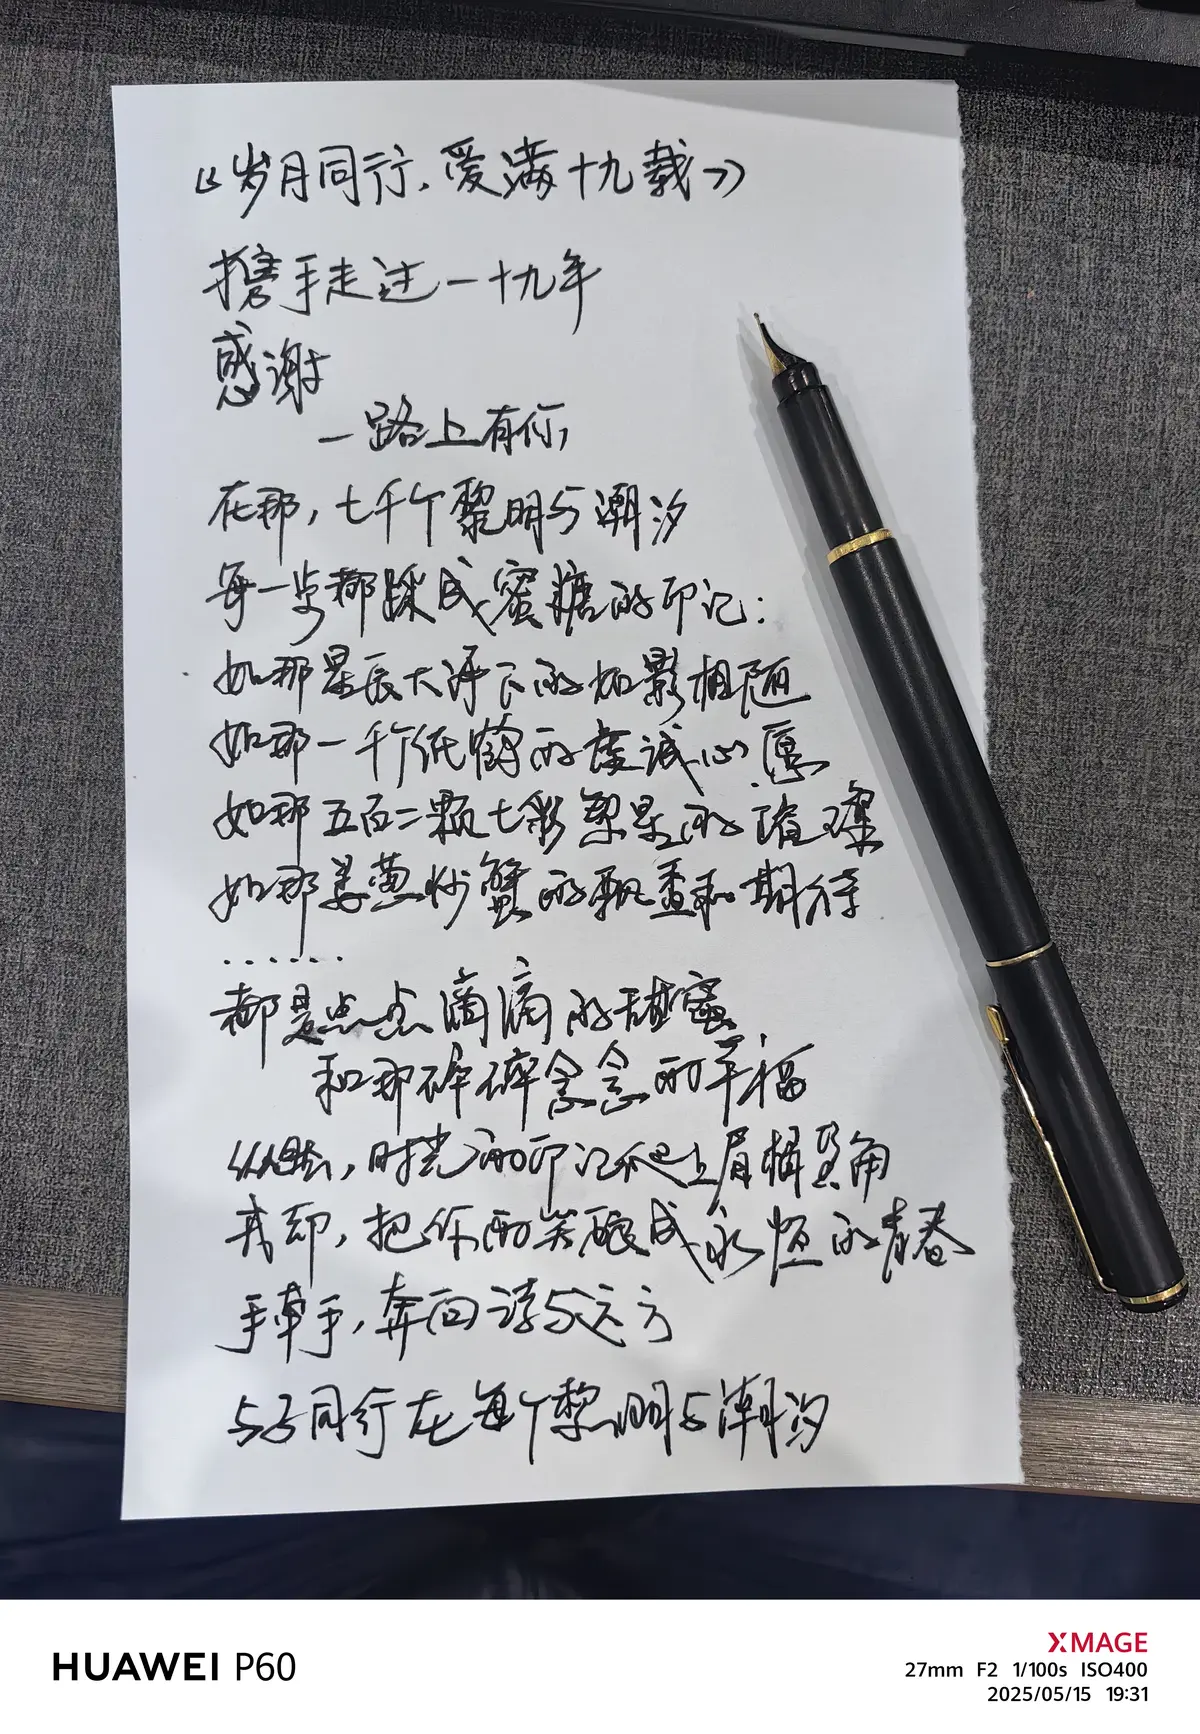 《岁月同行,爱满十九载》
携手走过一十九年
感谢
一路上有你,
在那,七千个黎明与潮汐
每一步都踩成蜜糖的印记:
如那星辰大海下的如影相随
如那一千个纸鹤的虔诚心愿
如那五百二颗七彩繁星的璀璨
如那姜葱炒蟹的飘香和期待
......
都是点点滴滴的甜蜜
和那碎碎念念的幸福
纵然,时光的印记爬上眉梢眼角
我却,把你的笑酿成永恒的青春
手牵手,奔向诗与远方
与子同行在每个黎明与潮汐
HUAWEI P60
XMAGE
27mm F2 1/100s ISO400
2025/05/15 19:31